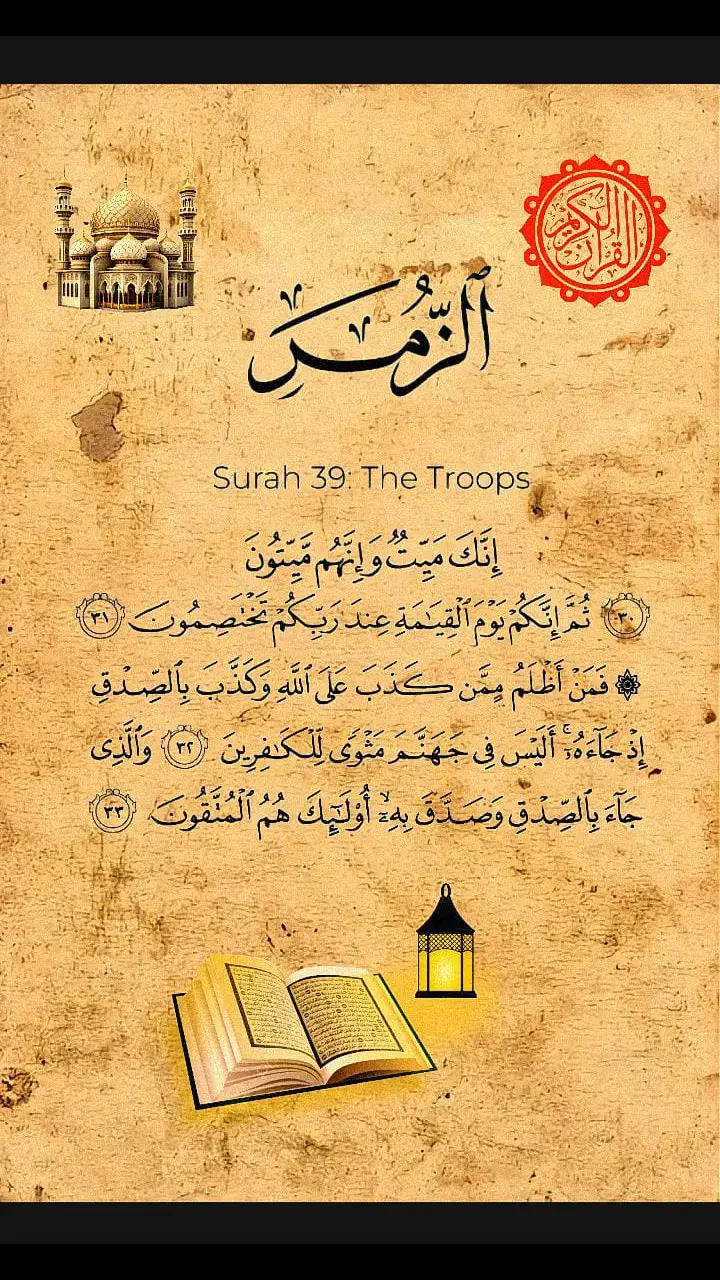 القرآن الكريم
ٱلزُّمَرِ
Surah 39: The Troops
إِنَّكَ مَيِّتٌ وَإِنَّهُم مَّيِّتُونَ
٣٠ ثُمَّ إِنَّكُمْ يَوْمَ ٱلْقِيَـٰمَةِ عِندَ رَبِّكُمْ تَخْتَصِمُونَ ٣١
۞ فَمَنْ أَظْلَمُ مِمَّن كَذَبَ عَلَى ٱللَّهِ وَكَذَّبَ بِٱلصِّدْقِ
إِذْ جَآءَهُۥٓ ۚ أَلَيْسَ فِى جَهَنَّمَ مَثْوًى لِّلْكَـٰفِرِينَ ٣٢ وَٱلَّذِى
جَآءَ بِٱلصِّدْقِ وَصَدَّقَ بِهِۦٓ ۙ أُو۟لَـٰٓئِكَ هُمُ ٱلْمُتَّقُونَ ٣٣